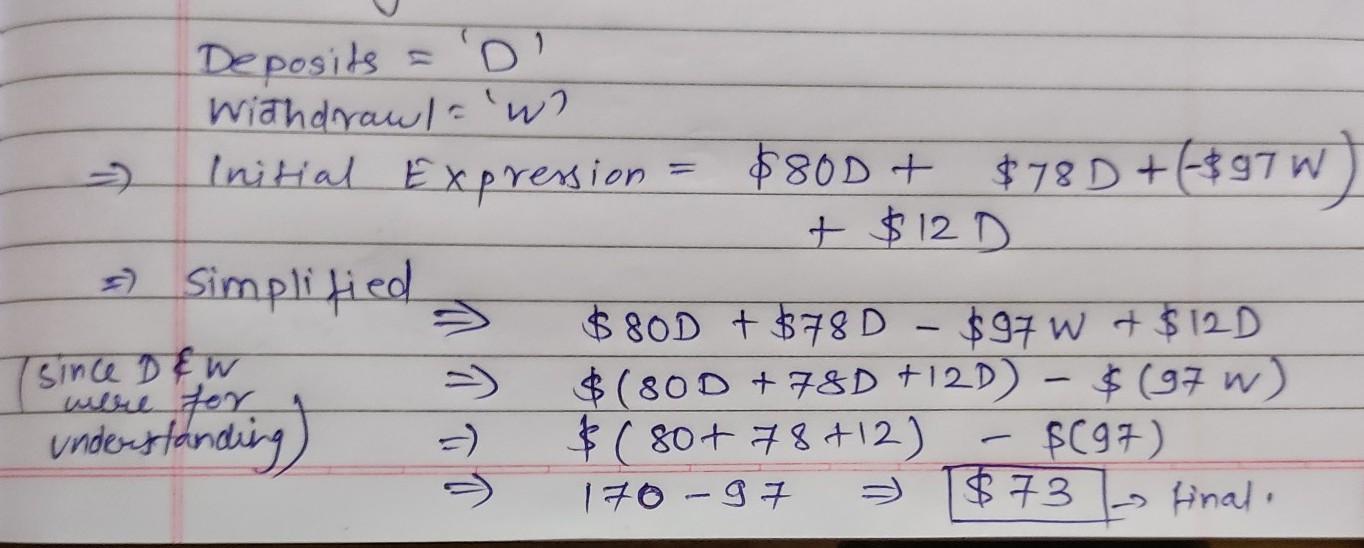 Deposits = 'D'
Withdrawl = 'W'
⇒ Initial Expression = $80D + $78D + (-$97W)
+ $12D
⇒ Simplified
⇒ $80D + $78D - $97W + $12D
(since D & W ⇒ $(80D + 78D + 12D) - $(97W)
were for
understanding) ⇒ $(80 + 78 + 12) - $(97)
⇒ 170 - 97 ⇒ $73 → final.